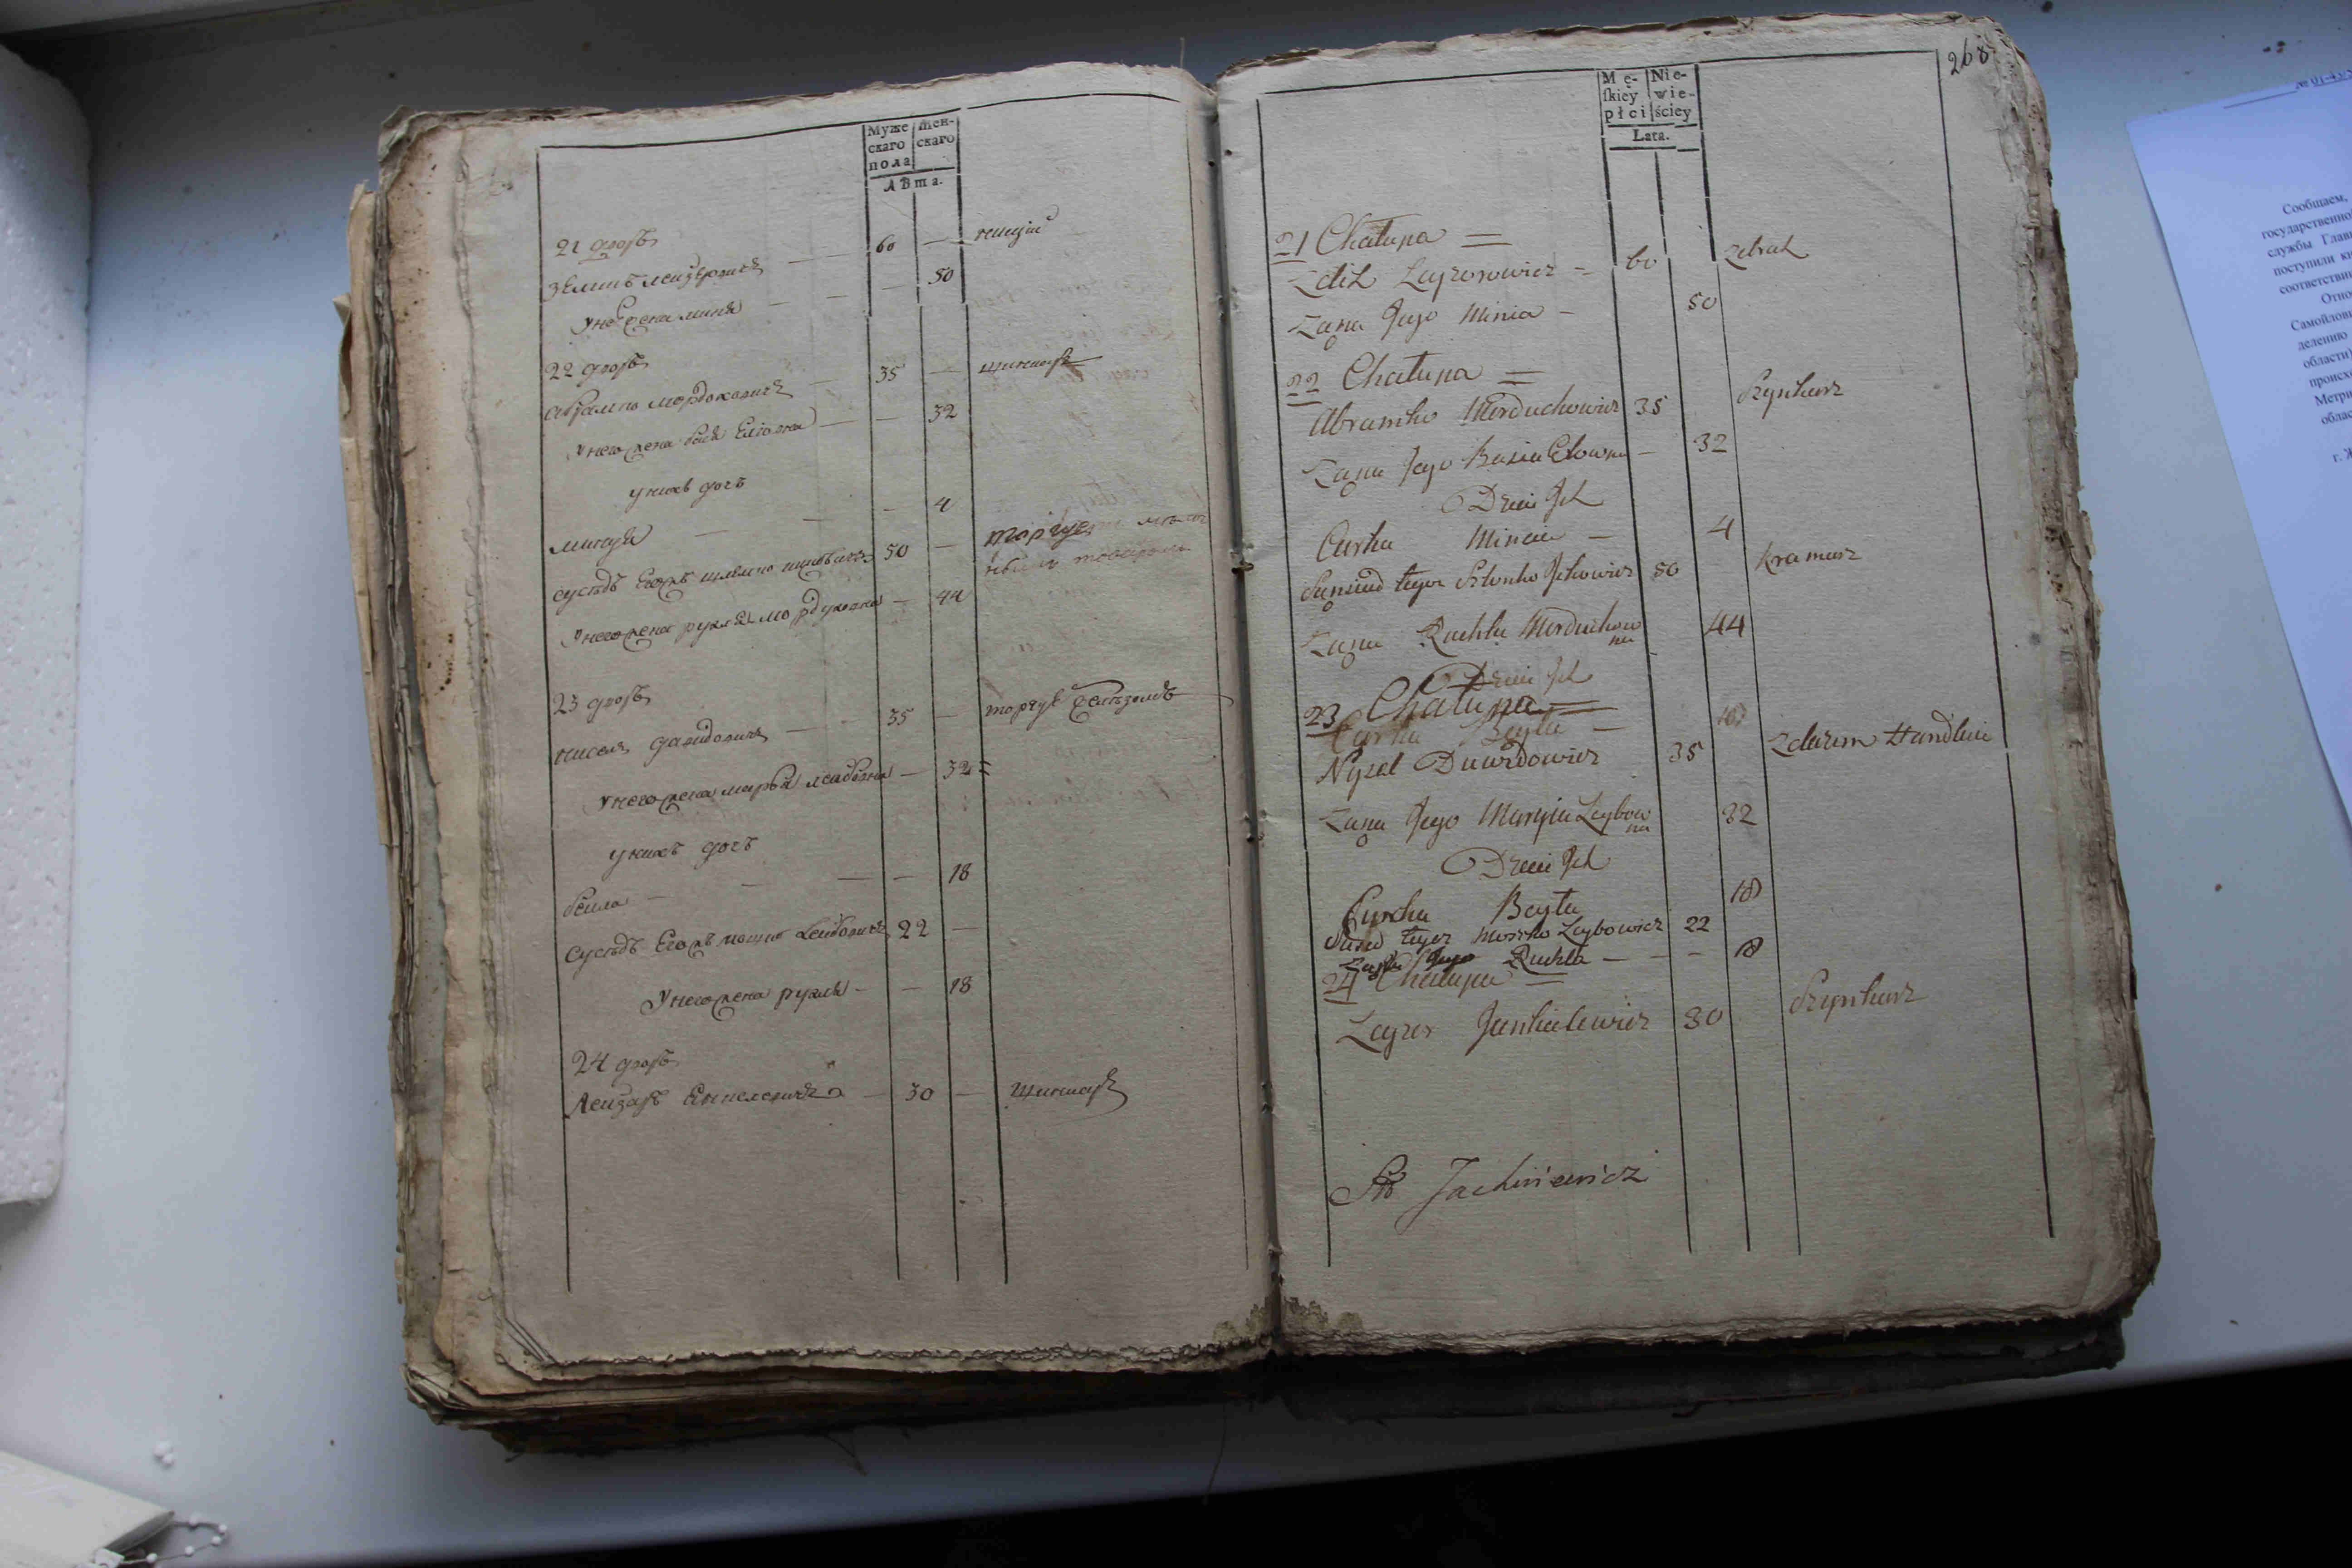 Муже
скаго
пола
жен-
скаго
лѣта.
21 дворъ
Зеликъ Лейзеровичъ — — 60 — нищій
У него жена Миня — — — 50
22 дворъ
Абрамко Мордуховичъ — 35 — шинкарь
У него жена Бася Еліовна — — 32
У нихъ дочь
Минця — — — 4
Сусѣдъ Егожъ Шлемко Ицковичъ 50 — торгуетъ
У него жена Рухля Мордуховна — 44
23 дворъ
Нисель Давидовичъ — — 35 — торгуе желѣзомъ
У него жена Марья Лейбовна — 32
У нихъ дочь
Бейла — — — — 18
Сусѣдъ Егожъ Мошко Лейбовичъ 22 —
У него жена Рухля — — 18
24 дворъ
Лейзаръ Янкелевичъ — 30 — шинкарь
268
Mę-
skiey
płci
Nie-
wie-
ściey
Lata.
21 Chałupa =
Zelik Leyzorowicz = 60 Zebrak
Żąna Jego Minia — 50
22 Chałupa =
Abramko Morduchowicz 35 Szynkarz
Żąna Jego Basia Elowna — 32
Dzieci Ich
Curka Mincia — 4
Sąnsiad tegoż Szlomko Ickowicz 50 Kramarz
Żąna Ruchla Morduchow
na 44
Dzieci Ich
23 Chałupa =
Curka Beyła — 18
Nysel Dawidowicz 35 Zelazem Handluie
Żąna Jego Maryia Leybow
na 32
Dzieci Ich
Curcha Beyła 18
Sąsiad tegoż Moszko Leybowicz 22
Żąna Jego Ruchla — — — 18
24 Chałupa =
Leyzer Jankielewicz 30 Szynkarz
Jachniewicz
Сообщаем,
государственно
службы Глав
поступили кн
соответстви
Отно
Самойлов
делению
области)
происхо
Метри
облас
г. Ж